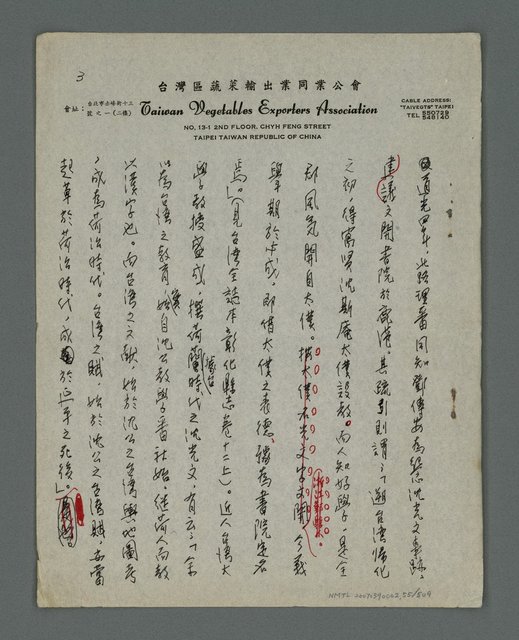 3
台灣區蔬菜輸出業同業公會
會址：台北市赤峰街十三號之一(二樓)
Taiwan Vegetables Exporters Association
NO. 13-1 2ND FLOOR, CHYH FENG STREET
TAIPEI TAIWAN REPUBLIC OF CHINA
CABLE ADDRESS:
"TAIVEGTS" TAIPEI
TEL 550729
548140
道光四年，北路理番同知鄧傳安為紀念沈光文事蹟，
建議文開書院於鹿港。其疏引則謂：「溯台灣歸化
之初，得寓賢沈斯庵太僕設教，而人知好學，是全
郡風氣開自太僕。按太僕名光文字文開，今義
學期於有成，即借太僕之表德，號為書院定名
焉」。(見台灣全誌本彰化縣志卷十二上)。近人台灣大
學教授盛成，撰荷蘭時代之沈光文，有云：「余
以為台灣之教育，實始自沈公教學番社始，從荷人而教
以漢字也。而台灣之文獻，始於沈公之台灣輿地圖考
，成為荷治時代。台灣之賦，始於沈公之台灣賦，亦當
起草於荷治時代，成於延平之死後」。
NMTL 20071590002, 55/849